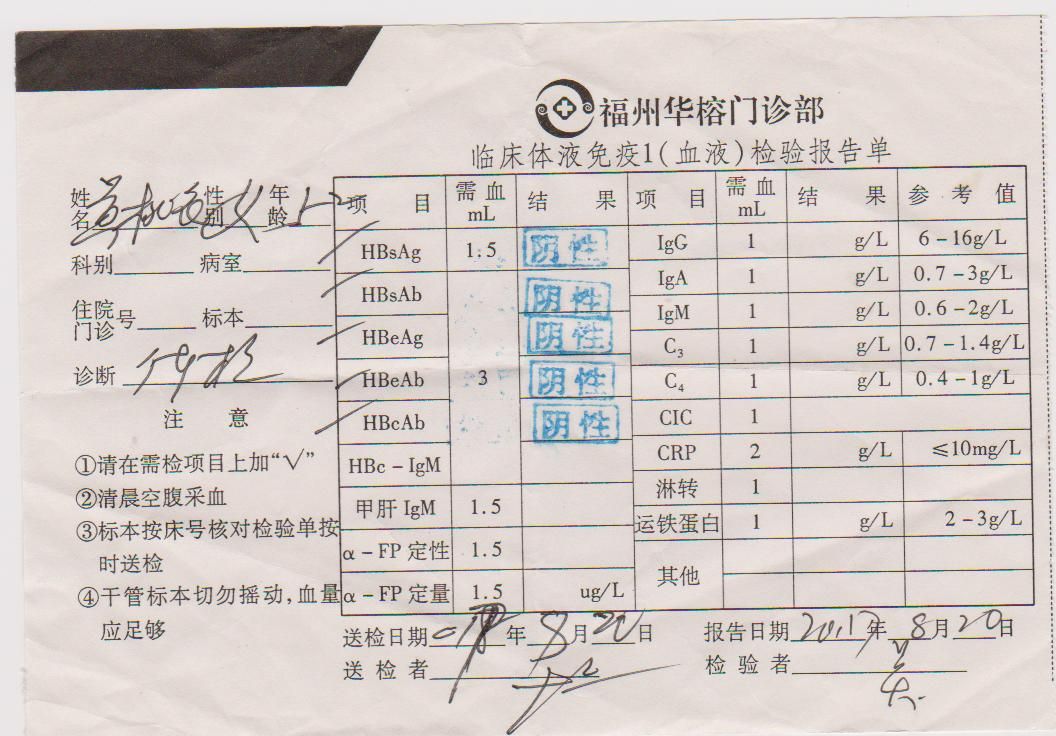 福州华榕门诊部
临床体液免疫1(血液)检验报告单
姓名 性别 女 年龄 52
科别 病室
住院门诊号 标本
诊断
注 意
①请在需检项目上加“√”
②清晨空腹采血
③标本按床号核对检验单按
时送检
④干管标本切勿摇动,血量
应足够
项 目 需血mL 结 果 项 目 需血mL 结 果 参 考 值
HBsAg 1.5 阴性 IgG 1 g/L 6-16g/L
HBsAb 阴性 IgA 1 g/L 0.7-3g/L
HBeAg 阴性 IgM 1 g/L 0.6-2g/L
HBeAb 3 阴性 C₃ 1 g/L 0.7-1.4g/L
HBcAb 阴性 C₄ 1 g/L 0.4-1g/L
HBc-IgM CIC 1
甲肝 IgM 1.5 CRP 2 g/L ≤10mg/L
α-FP 定性 1.5 淋转 1
α-FP 定量 1.5 ug/L 运铁蛋白 1 g/L 2-3g/L
其他
送检日期 年 8 月 20 日 报告日期 2017 年 8 月 20 日
送 检 者 检 验 者